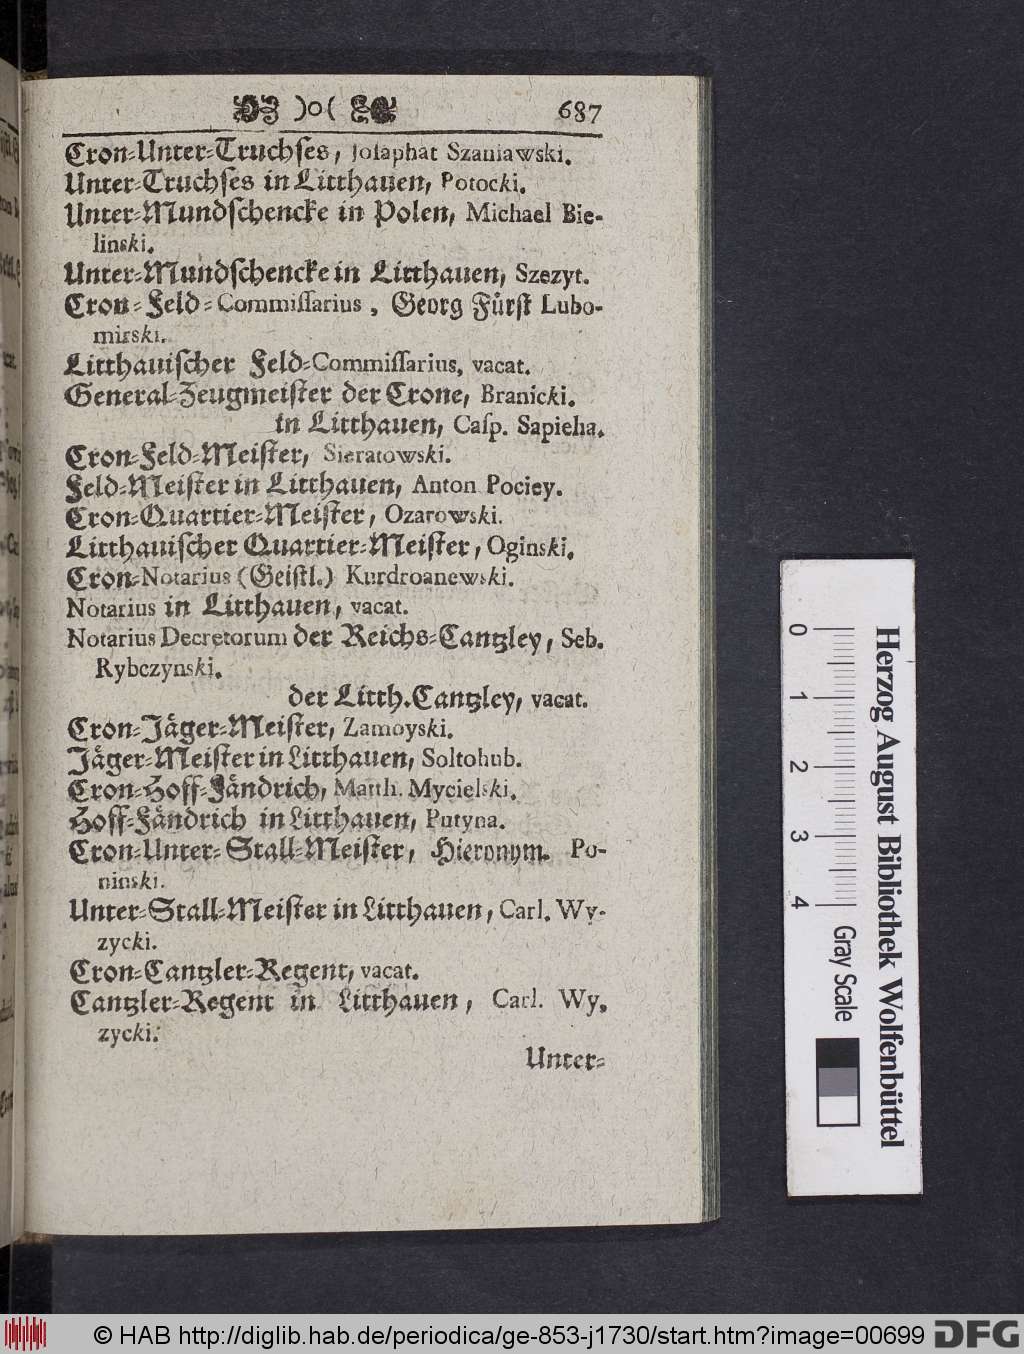 )o( 687
Cron-Unter-Truchses, Josaphat Szaniawski.
Unter-Truchses in Litthauen, Potocki.
Unter-Mundschencke in Polen, Michael Bie-
linski.
Unter-Mundschencke in Litthauen, Szezyt.
Cron-Feld-Commissarius, Georg Fürst Lubo-
mirski.
Litthauischer Feld-Commissarius, vacat.
General-Zeugmeister der Crone, Branicki.
in Litthauen, Casp. Sapieha.
Cron-Feld-Meister, Sieratowski.
Feld-Meister in Litthauen, Anton Pociey.
Cron-Quartier-Meister, Ozarowski.
Litthauischer Quartier-Meister, Oginski.
Cron-Notarius (Geistl.) Kurdroanewski.
Notarius in Litthauen, vacat.
Notarius Decretorum der Reichs-Cantzley, Seb.
Rybczynski.
der Litth. Cantzley, vacat.
Cron-Jäger-Meister, Zamoyski.
Jäger-Meister in Litthauen, Soltohub.
Cron-Hoff-Fändrich, Matth. Mycielski.
Hoff-Fändrich in Litthauen, Putyna.
Cron-Unter-Stall-Meister, Hieronym. Po-
ninski.
Unter-Stall-Meister in Litthauen, Carl. Wy-
zycki.
Cron-Cantzler-Regent, vacat.
Cantzler-Regent in Litthauen, Carl. Wy.
zycki.
Unter-
0 1 2 3 4 Gray Scale
Herzog August Bibliothek Wolfenbüttel
© HAB http://diglib.hab.de/periodica/ge-853-j1730/start.htm?image=00699 DFG